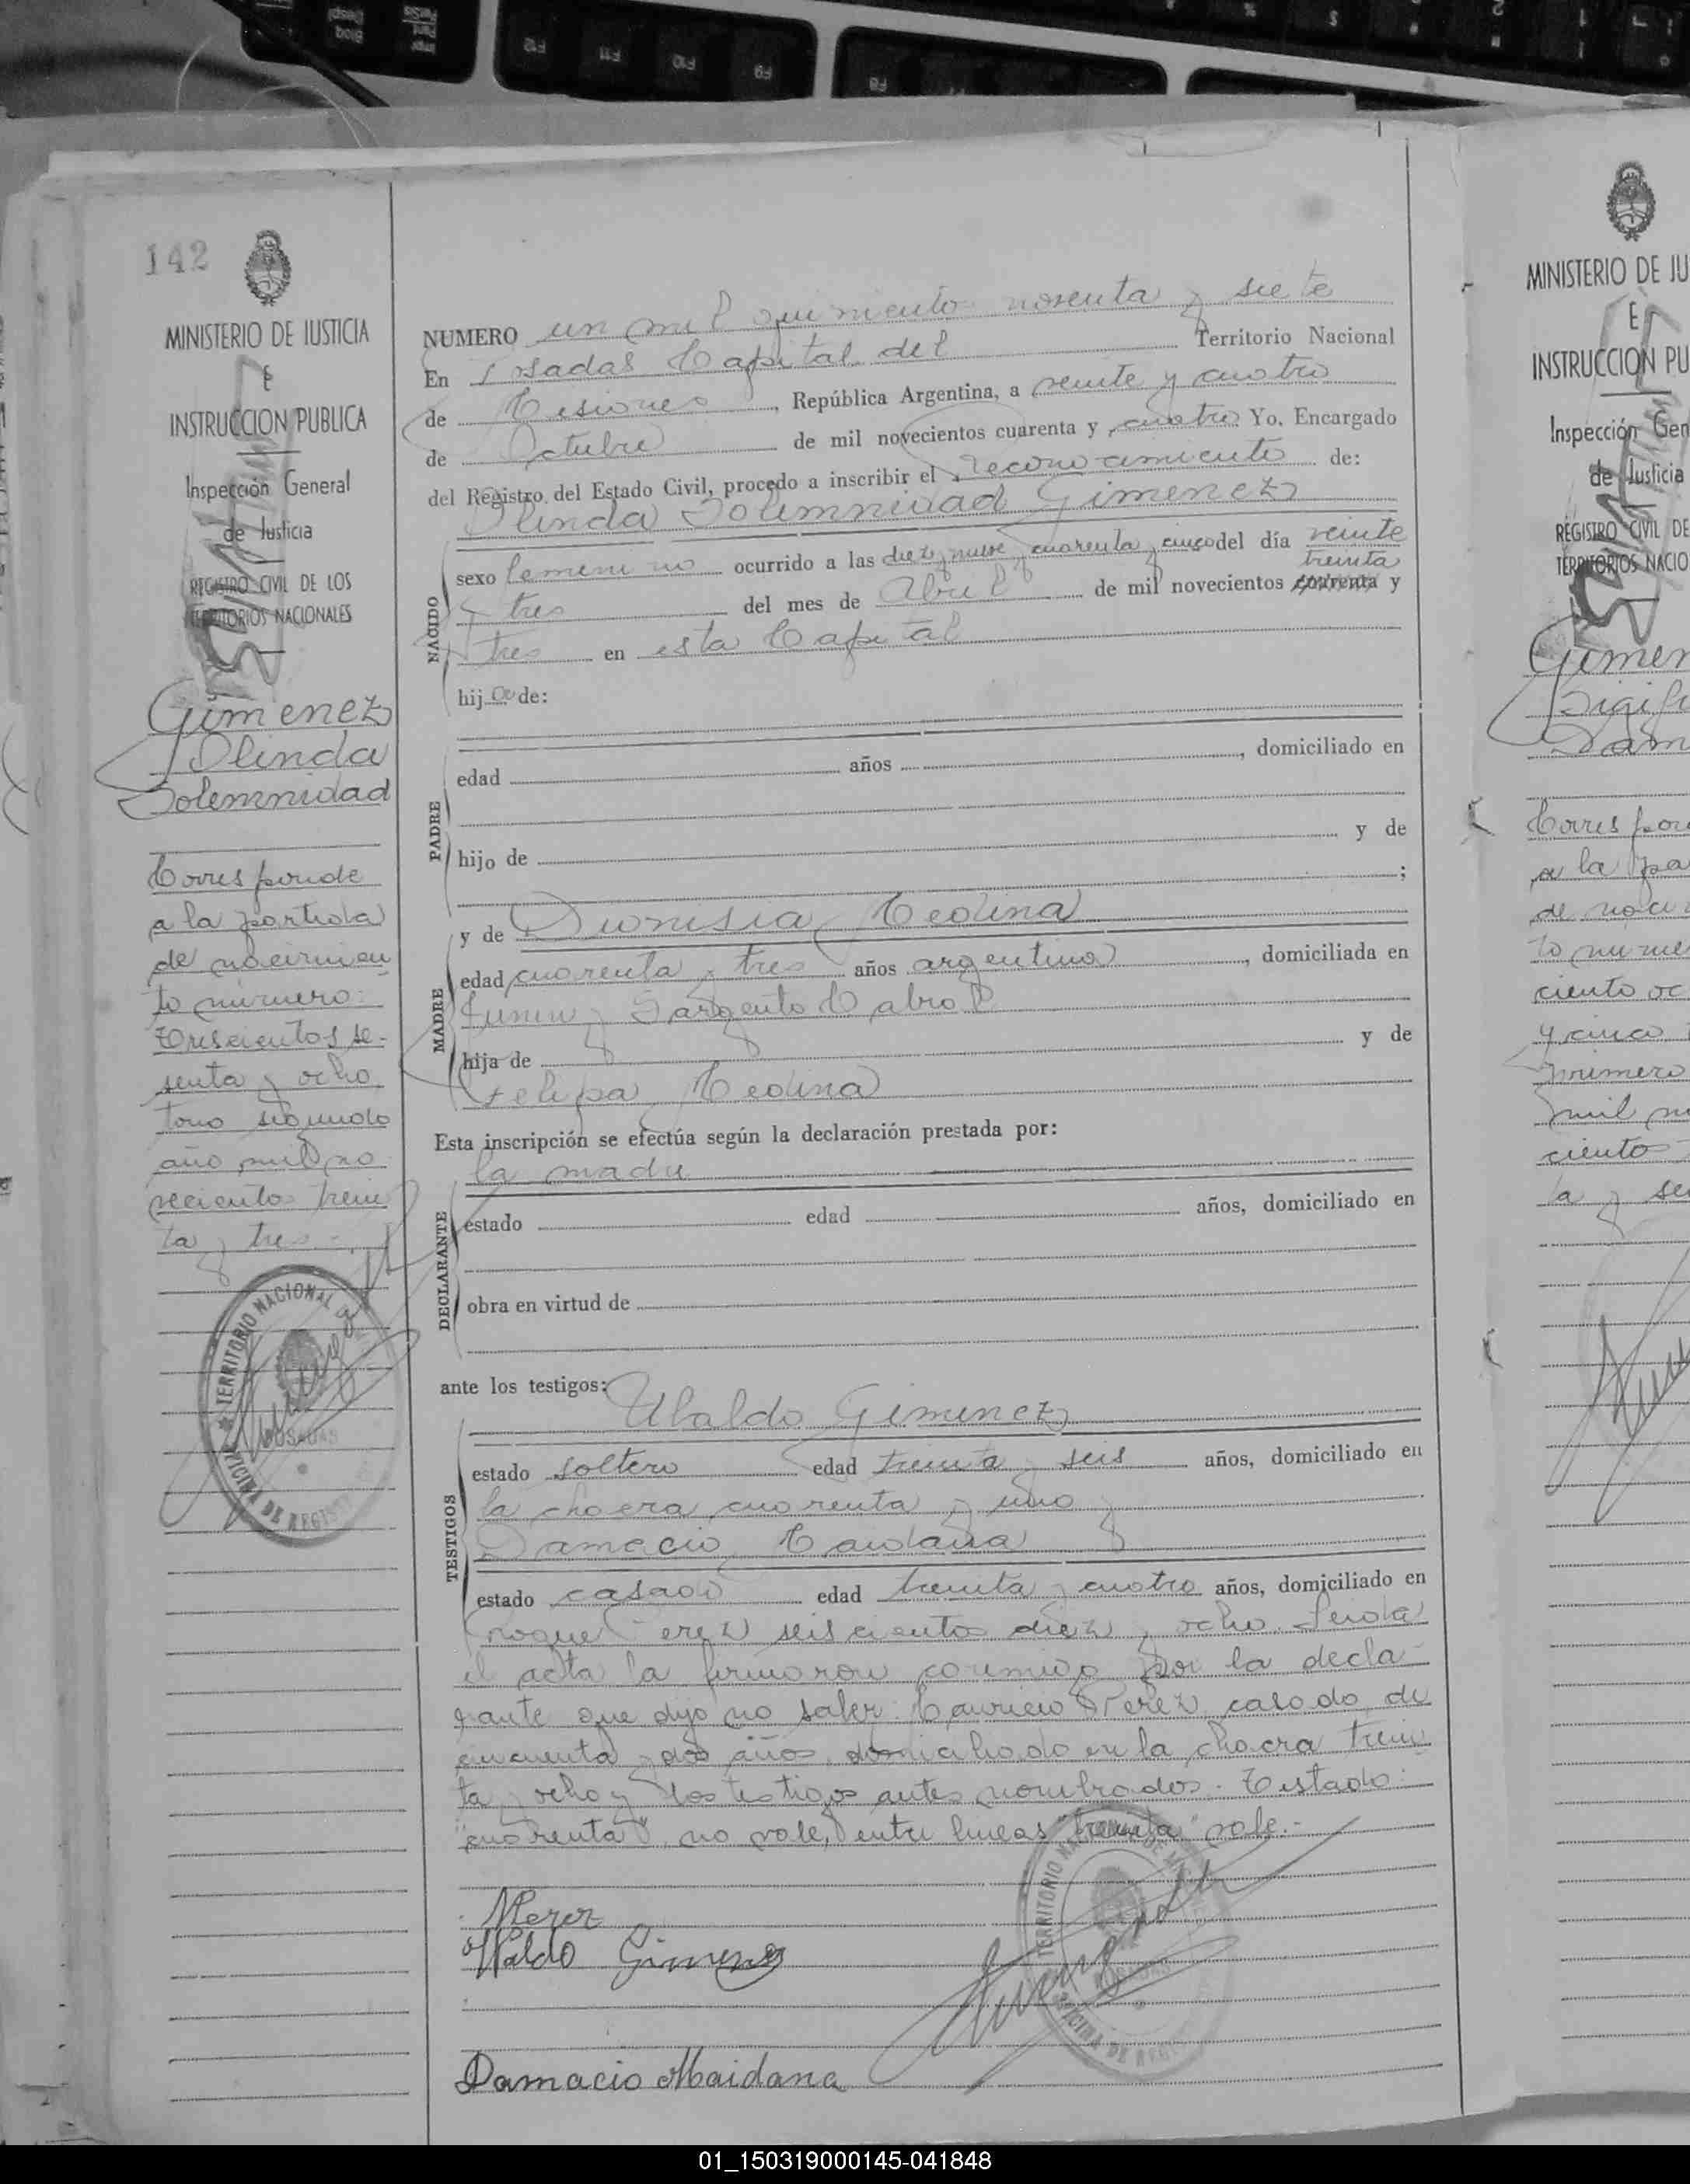 142
MINISTERIO DE JUSTICIA
E
INSTRUCCION PUBLICA
Inspección General
de Justicia
REGISTRO CIVIL DE LOS
TERRITORIOS NACIONALES
Gimenez
Olinda
Solemnidad
Corresponde
a la partida
de nacimien
to número:
Trescientos se-
senta y ocho
tomo segundo
año mil no
vecientos trein
ta y tres.-
TERRITORIO NACIONAL
POSADAS
OFICINA DE REGIST
NUMERO un mil quiniento noventa y siete
En Posadas Capital del Territorio Nacional
de Misiones, República Argentina, a veinte y cuatro
de Octubre de mil novecientos cuarenta y cuatro Yo, Encargado
del Registro del Estado Civil, procedo a inscribir el reconocimiento de:
Olinda Solemnidad Gimenez
NACIDO
sexo femenino ocurrido a las diez y nueve y cuarenta y cinco del día veinte
treinta
y tres del mes de Abril de mil novecientos cuarenta y
tres en esta Capital
hija de:
PADRE
edad años , domiciliado en
y de
hijo de
;
MADRE
y de Dionisia Medina
edad cuarenta y tres años argentina, domiciliada en
Junin y Sargento Cabral
hija de y de
Felipa Medina
Esta inscripción se efectúa según la declaración prestada por:
la madre
DECLARANTE
estado edad años, domiciliado en
obra en virtud de
ante los testigos:
Ubaldo Gimenez
TESTIGOS
estado soltero edad treinta y seis años, domiciliado en
la chacra cuarenta y uno y
Damacio Maidana
estado casado edad treinta y cuatro años, domiciliado en
Roque Perez seiscientos diez y ocho. Leida
el acta la firmaron conmigo por la decla-
rante que dijo no saber. Mauricio Perez, casado, de
cincuenta y dos años domiciliado en la chacra trein
ta y ocho y los testigos antes nombrados. Testado:
"cuarenta" no vale, entre lineas "treinta" vale.-
MPerez
Ubaldo Gimenez
TERRITORIO NACIONAL DE MISIONES
POSADAS
OFICINA DE REGIS
Damacio Maidana
MINISTERIO DE JU
E
INSTRUCCION PU
Inspección Gen
de Justicia
REGISTRO CIVIL DE
TERRITORIOS NACIO
Gimen
Corres pon
a la pa
de naci
to nume
ciento oc
y cinco
primero
mil n
ciento
ta y se
01_150319000145-041848